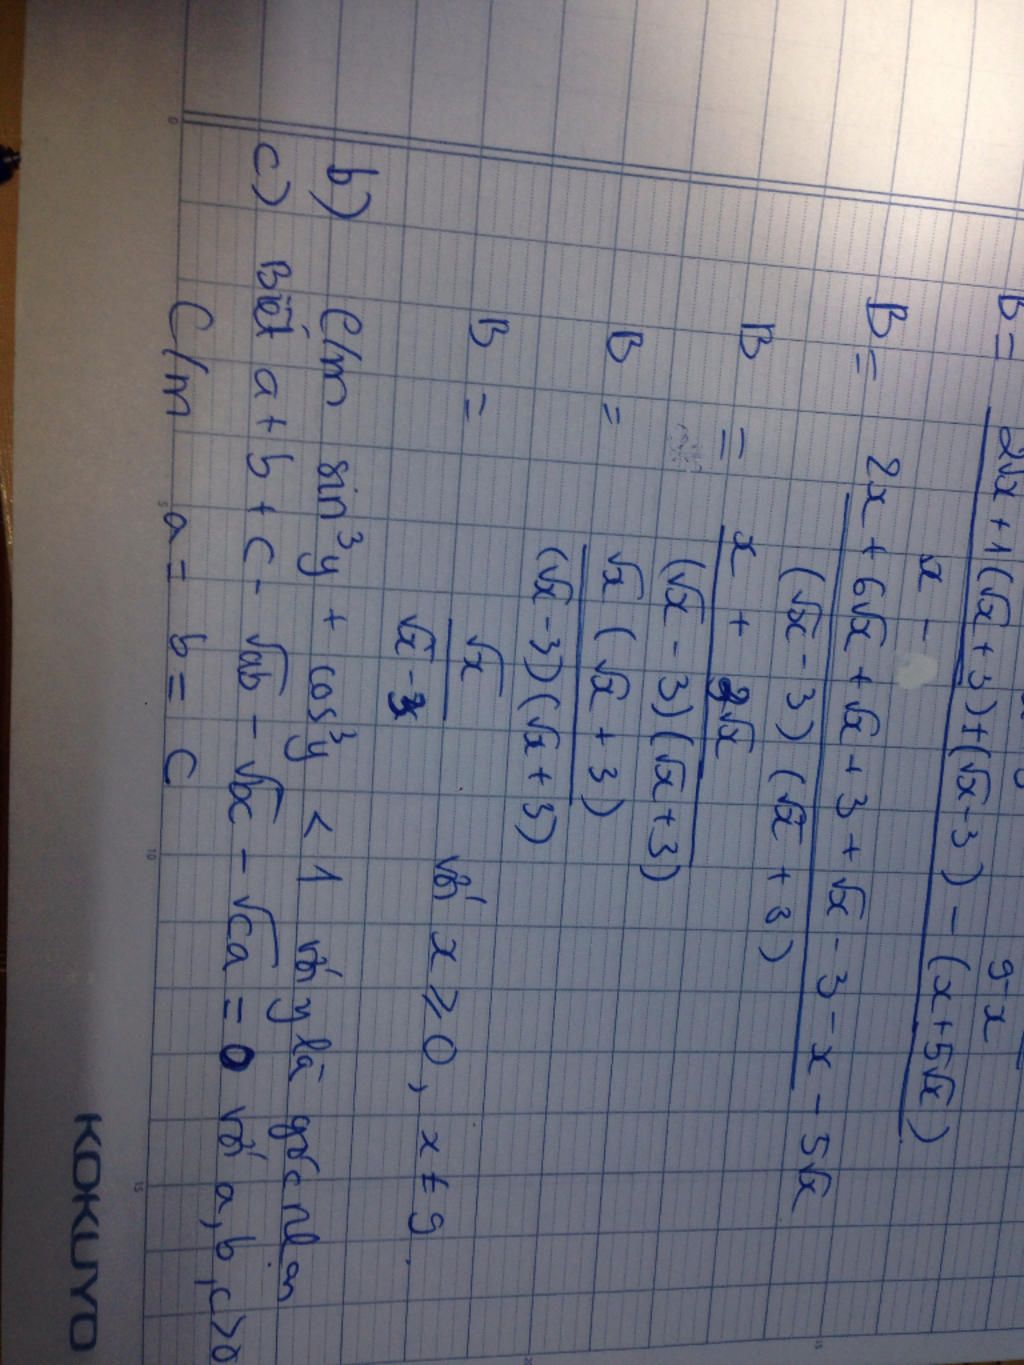 9-x
B = 2√x + 1(√x + 3) + (√x - 3) - (x + 5√x)
x -
B = 2x + 6√x + √x + 3 + √x - 3 - x - 5√x
(√x - 3) (√x + 3)
B = x + 3√x
(√x - 3)(√x + 3)
B = √x (√x + 3)
(√x - 3)(√x + 3)
B = √x
√x - 3
với x ≥ 0, x ≠ 9.
b) C/m sin³y + cos³y < 1 với y là góc nhọn
c) Biết a + b + c - √ab - √bc - √ca = 0 với a, b, c > 0
C/m a = b = c
KOKUYO